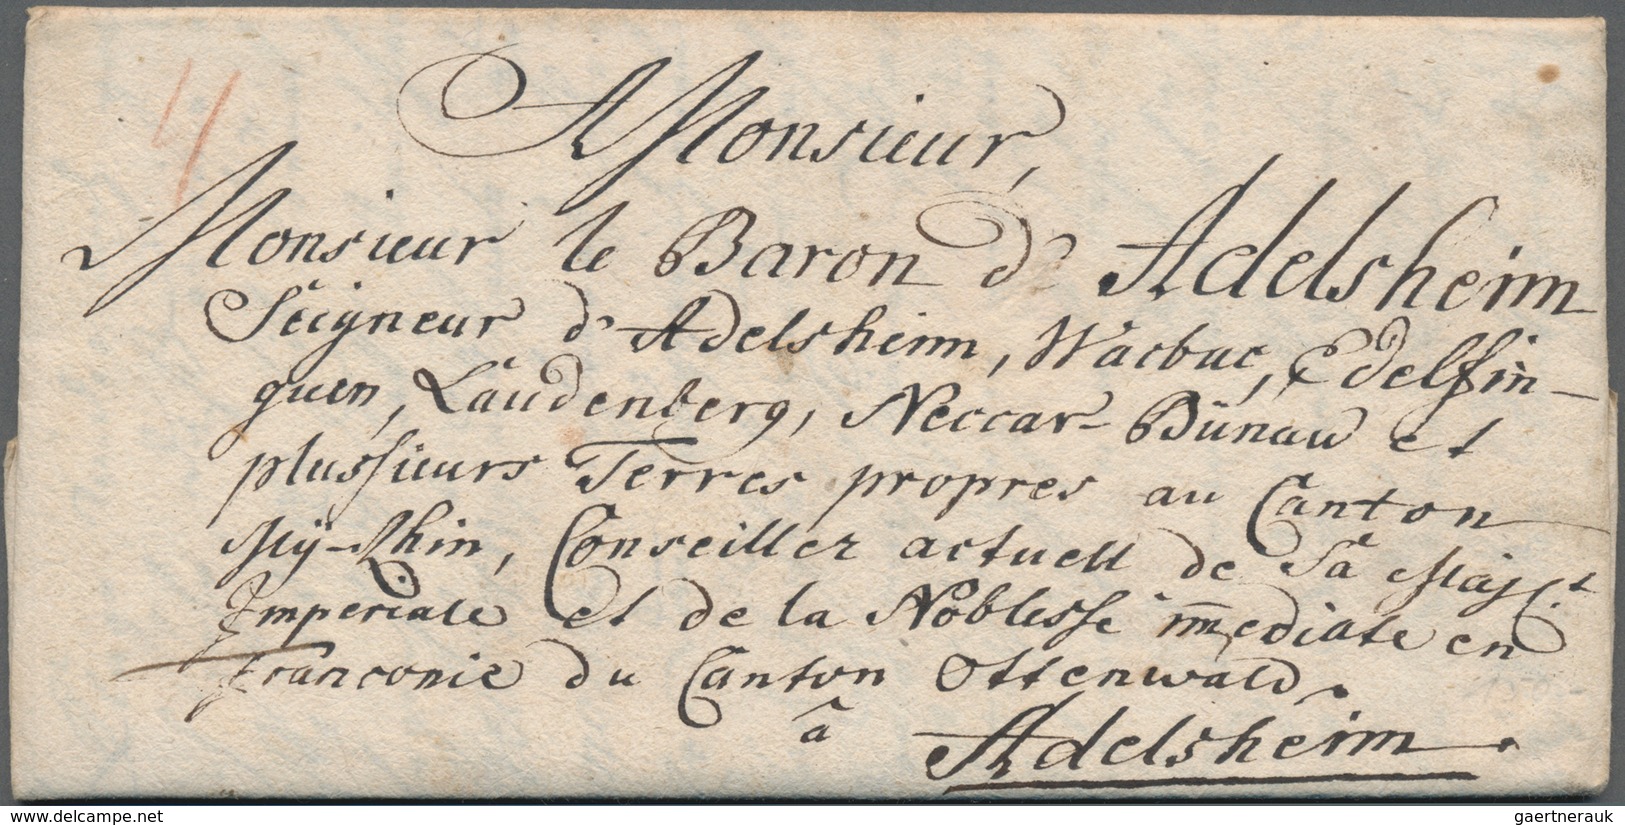 A Monsieur,
Monsieur le Baron d'Adelsheim
Seigneur d'Adelsheim, Wacbac, Edelfin-
guen, Laudenberg, Neccar-Bünau et
plussieurs Terres propres au Canton
My-Rhin, Conseiller actuell de Sa Majet
Imperiale et de la Noblesse immediate en
Franconie du Canton Ottenwald.
à
Adelsheim.
www.delcampe.net
gaertnerauk